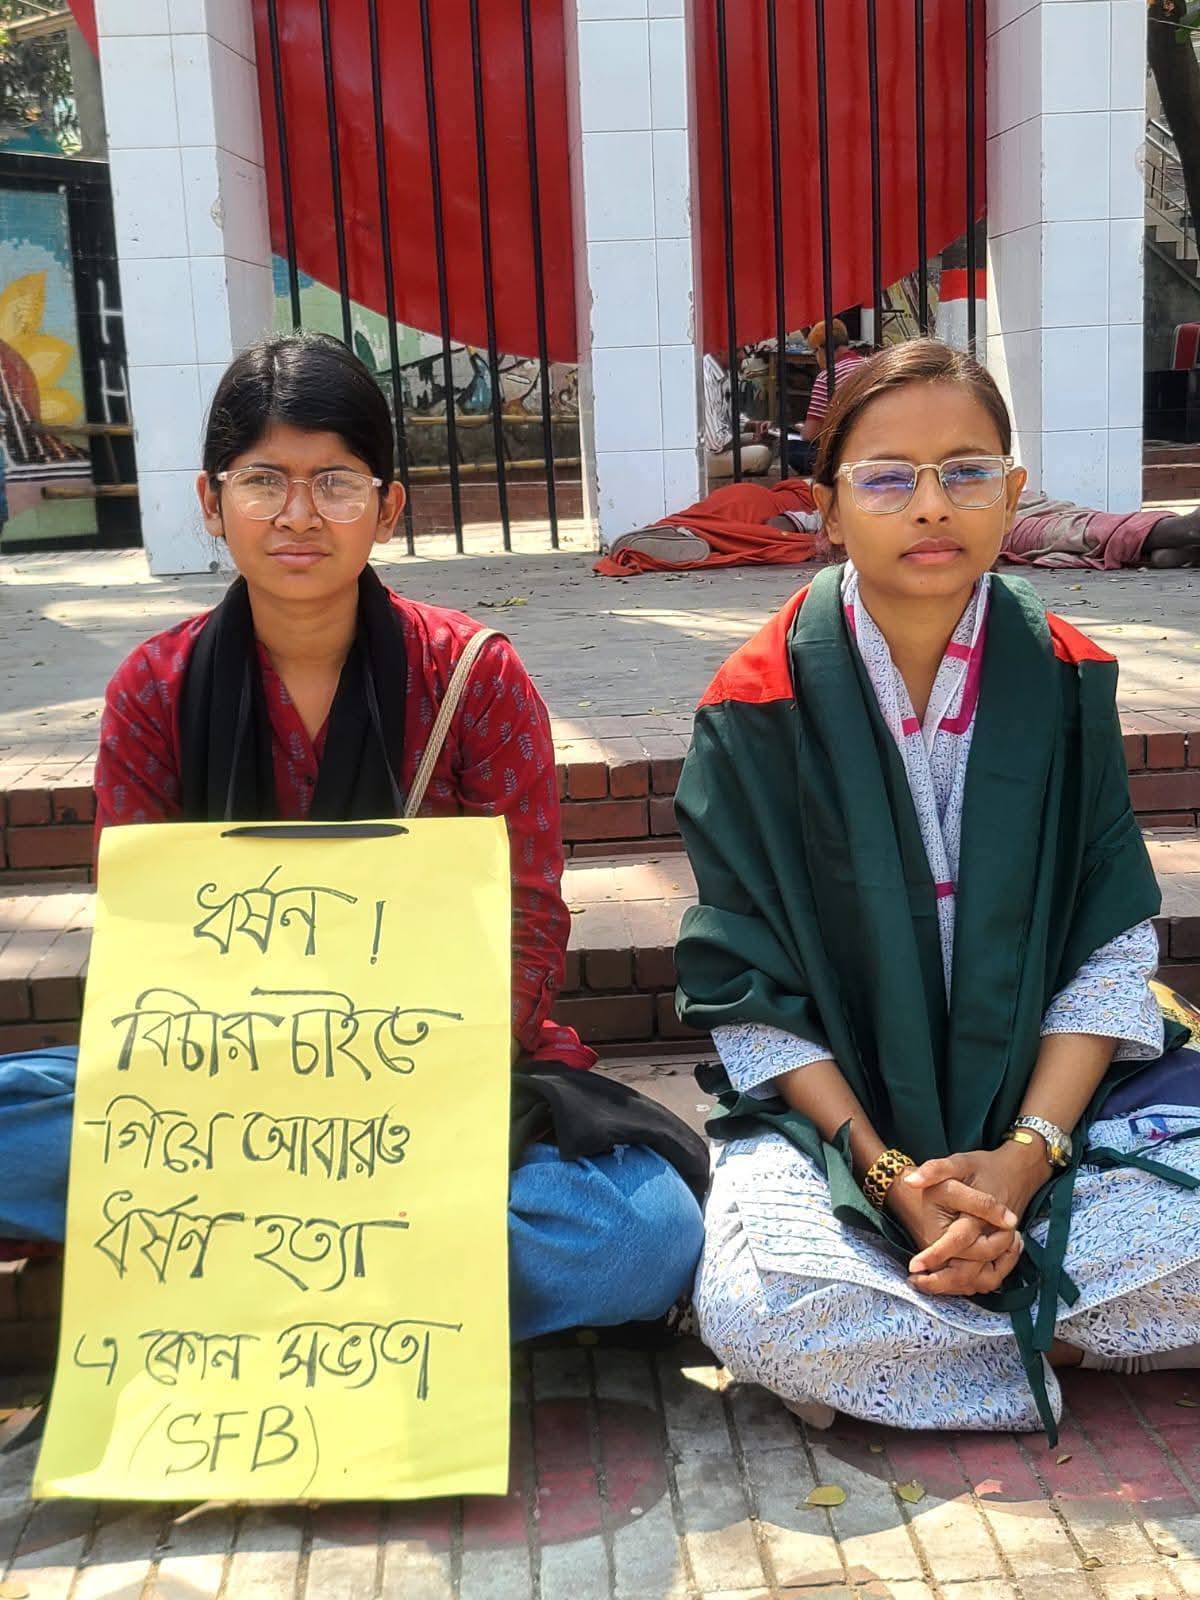 ধর্ষন !
বিচার চাইতে
গিয়ে আবারও
ধর্ষন হত্যা
এ কোন সভ্যতা
(SFB)